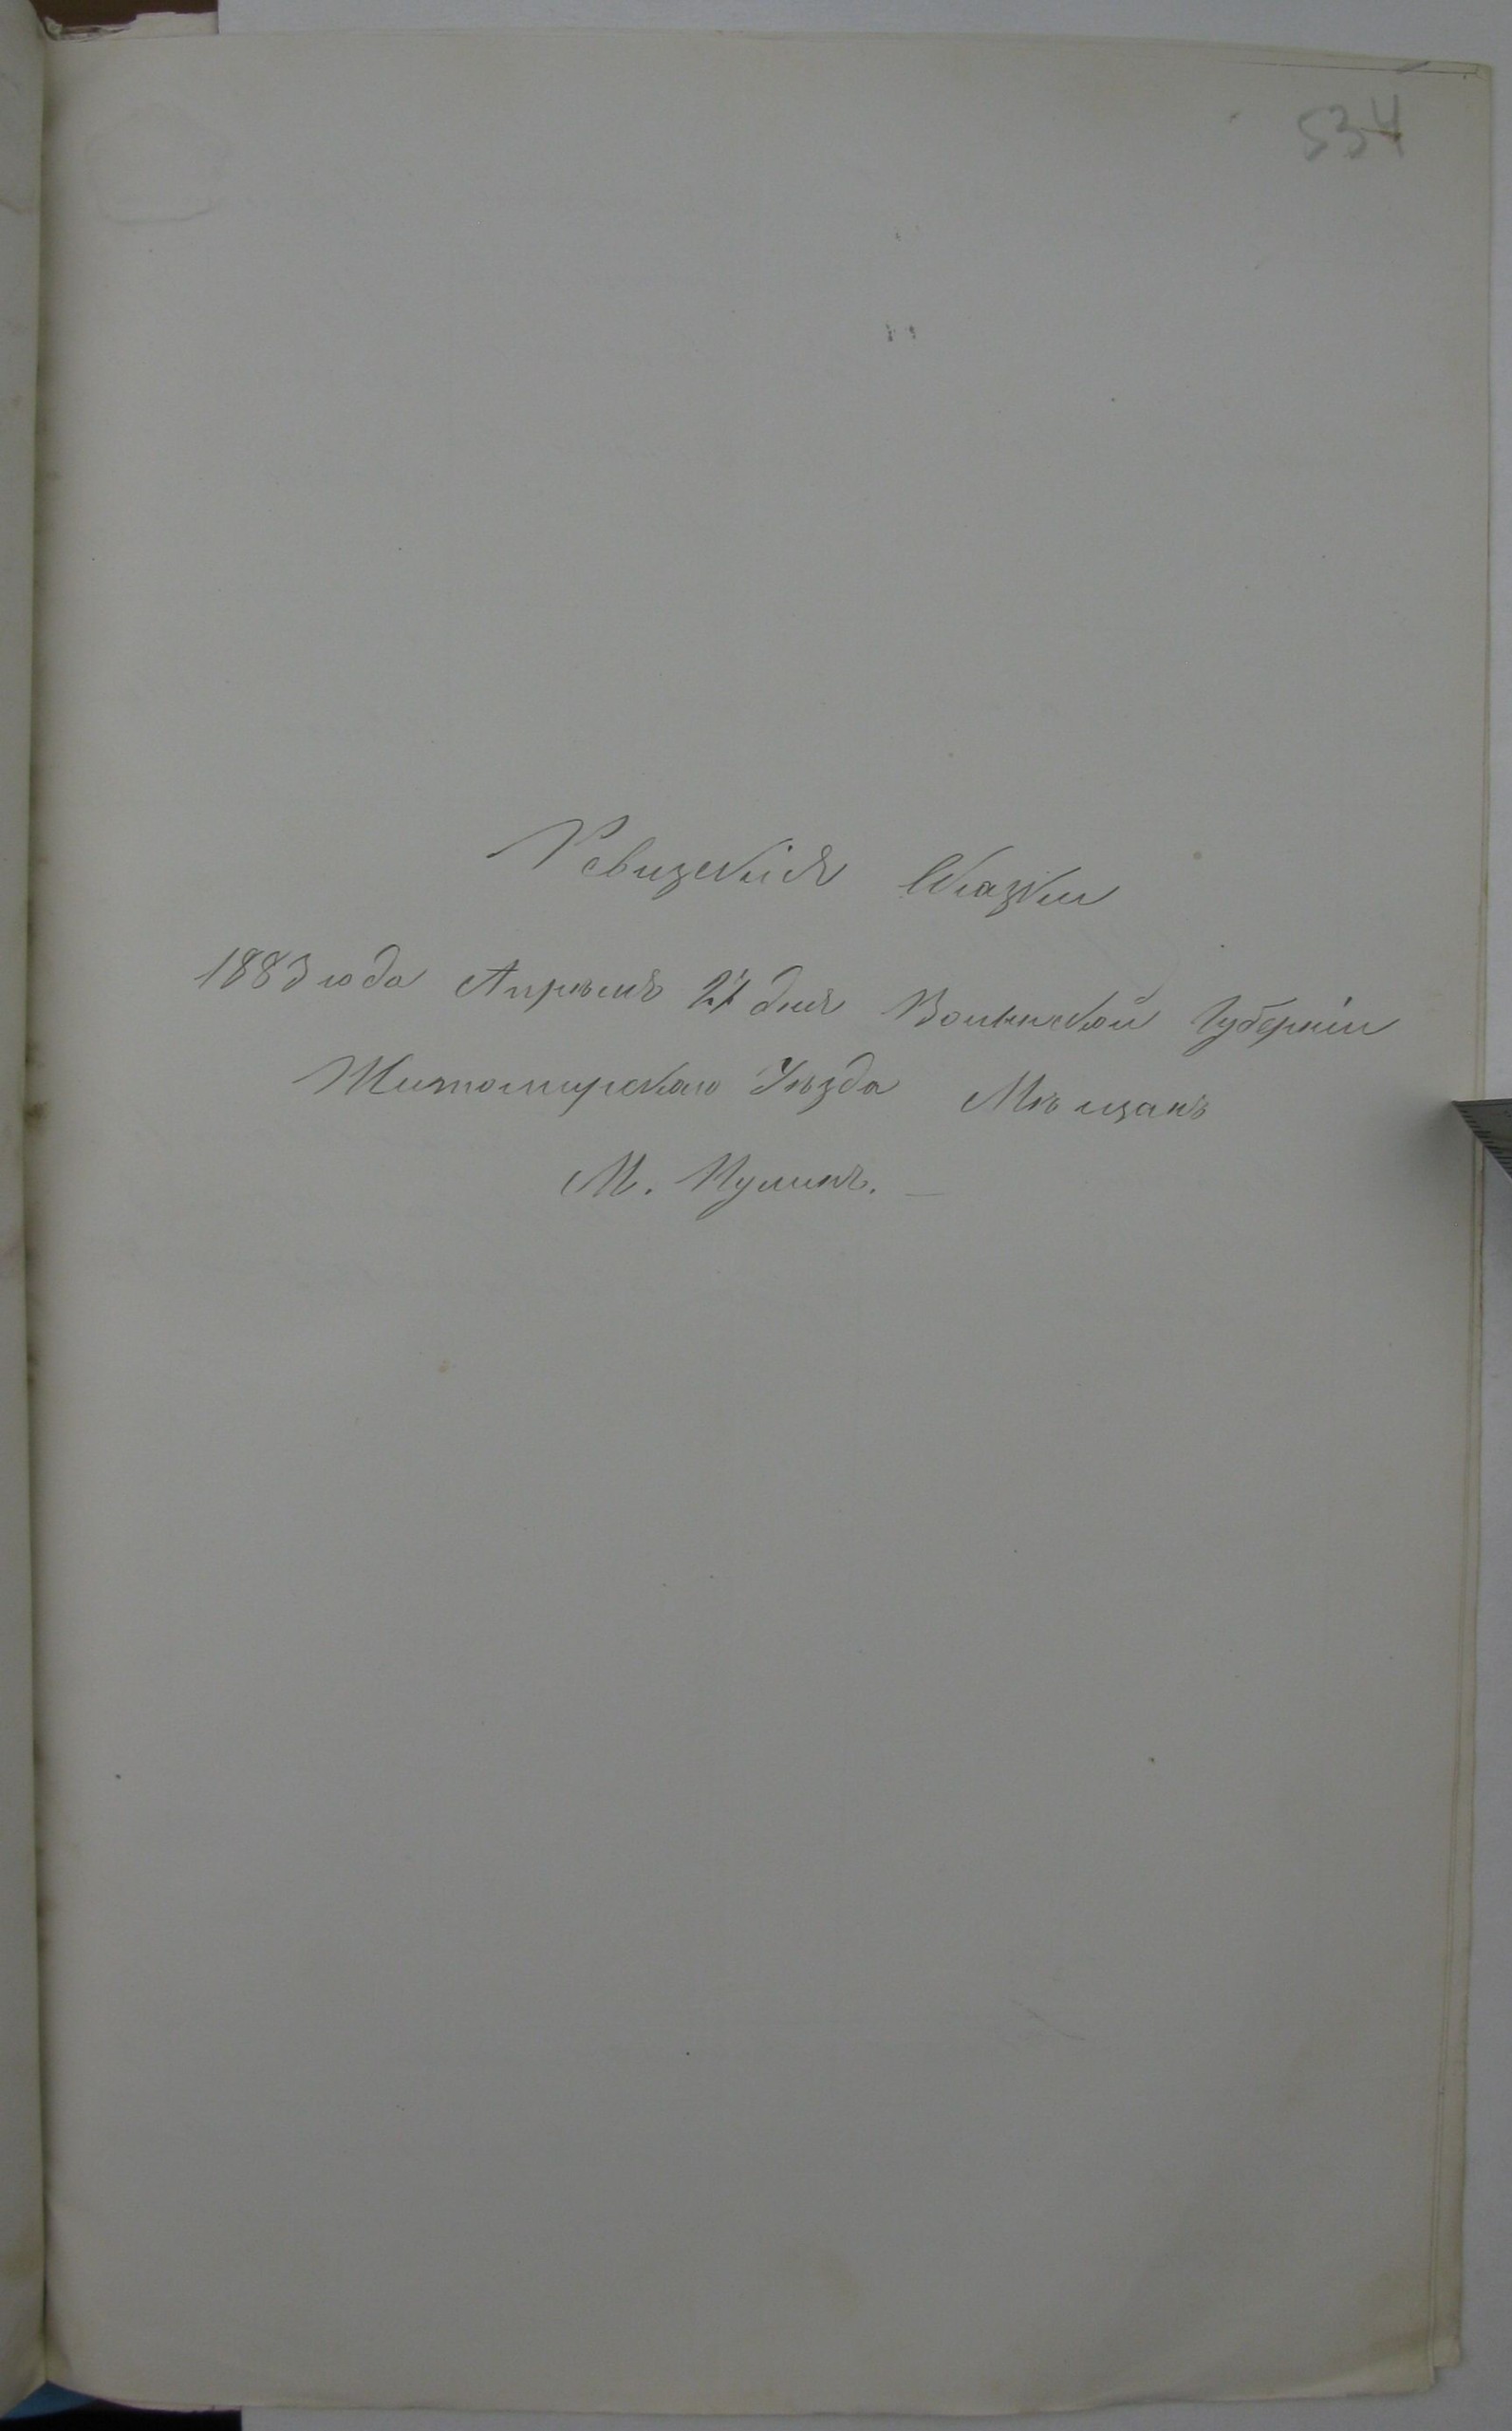 534
Ревизскія Сказки
1883 года Апрѣля 27 дня Волынской Губерніи
Житомирскаго Уѣзда Мѣщанъ
М. Пулинъ.